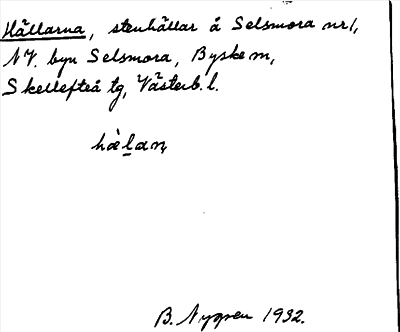 Hällarna, stenhällar å Selsmora nr 1,
NV. byn Selsmora, Byske sn,
Skellefteå tg, Västerb. l.
hàlan
B. Nygren 1932.